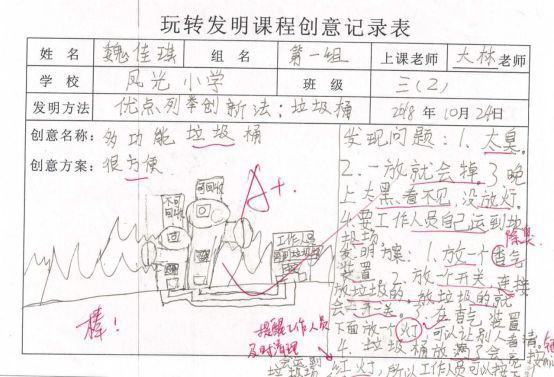 玩转发明课程创意记录表
姓名 魏佳琪 组名 第一组 上课老师 大林老师
学校 凤光小学 班级 三(2)
发明方法 优点列举创新法:垃圾桶 2018年10月24日
创意名称:多功能垃圾桶
创意方案:很方便
不可回收
可回收
工作人员
A+
棒!
提醒工作人员
及时清理
发现问题:1、太臭。
2、一放就会掉。3、晚
上太黑,看不见,没放灯。
4、要工作人员自己运到垃
圾场。
除臭
发明方案:1、放一个香气
装置。2、放一个开关,连接
放垃圾的,放垃圾的就
3、在香气装置
下面放一个灯,可以让别人看清。
4、垃圾桶放满了会
红灯,所以工作人员可以按
会运到
垃圾场